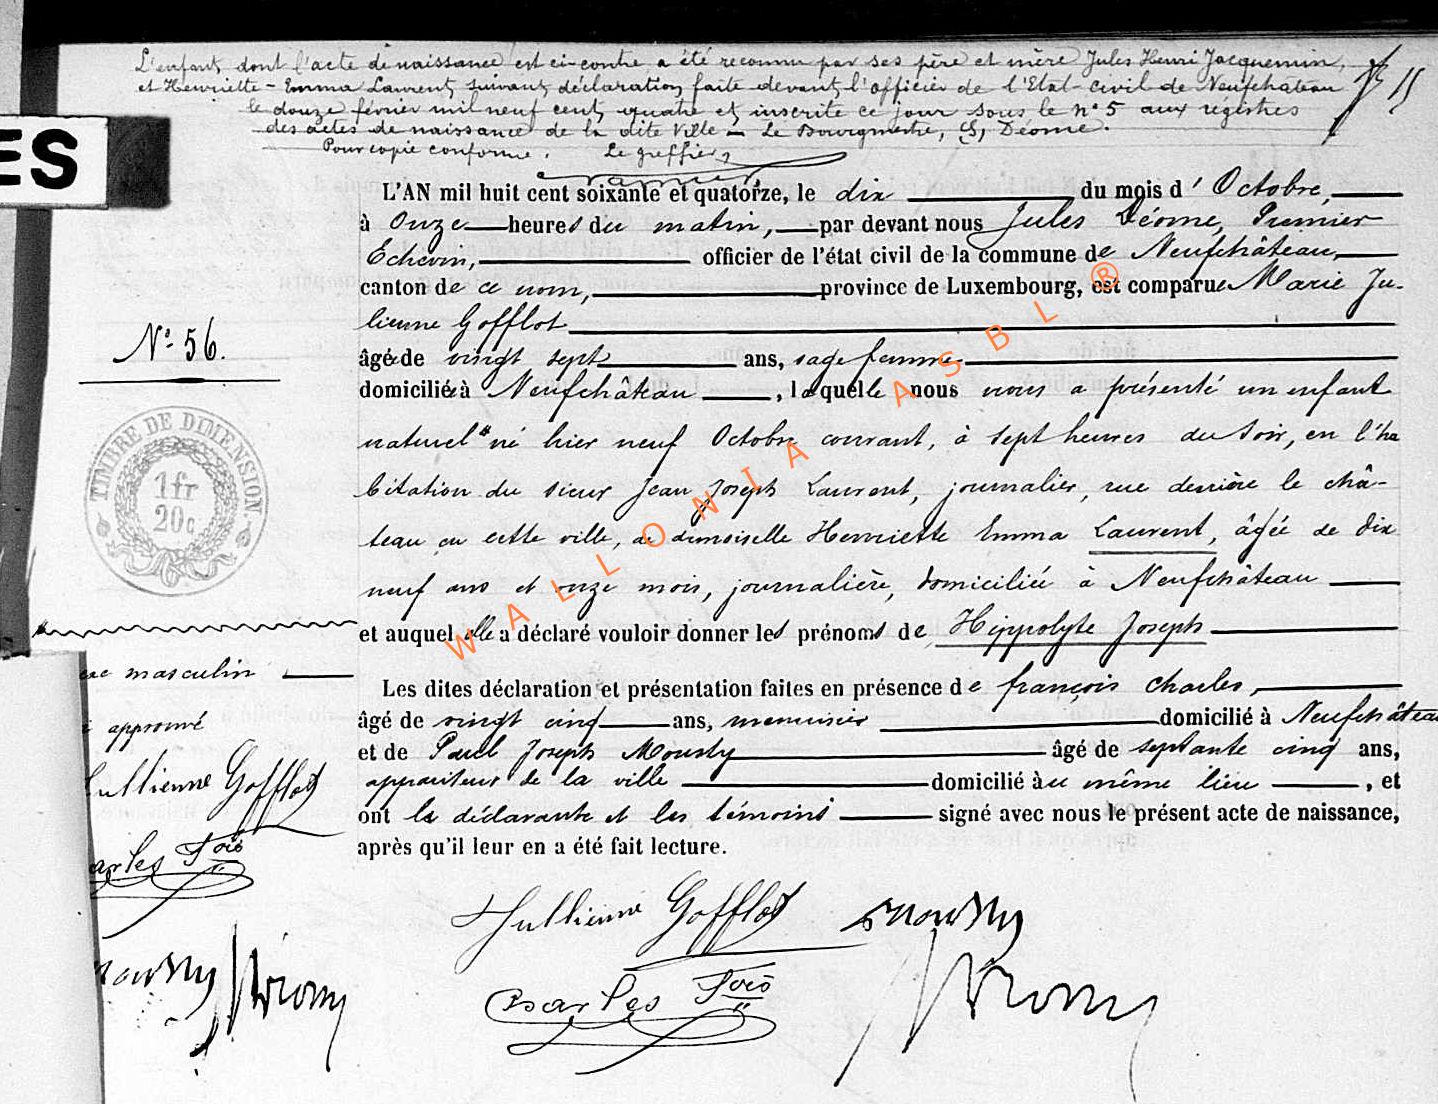 L'enfant dont l'acte de naissance est ci-contre a été reconnu par ses père et mère Jules Henri Jacquemin,
et Henriette-Emma Laurent, suivant déclaration faite devant l'officier de l'Etat-civil de Neufchâteau
le douze février mil neuf cent quatre et inscrite ce jour sous le n° 5 aux régistres
des actes de naissance de la dite Ville - Le Bourgmestre, (S) Déome.
Pour copie conforme. Le greffier,
15
ES
L'AN mil huit cent soixante et quatorze, le dix du mois d'Octobre,
à Onze heures du matin, par devant nous Jules Déome, Premier
Echevin, officier de l'état civil de la commune de Neufchâteau,
canton de ce nom, province de Luxembourg, est comparue Marie Ju-
lienne Gofflot
N° 56.
âgée de vingt sept ans, sage femme
domiciliée à Neufchâteau, laquelle nous nous a présenté un enfant
naturel * né hier neuf Octobre courant, à sept heures du soir, en l'ha
bitation du sieur Jean Joseph Laurent, journalier, rue derrière le châ-
teau en cette ville, de demoiselle Henriette Emma Laurent, âgée de dix
neuf ans et onze mois, journalière, domiciliée à Neufchâteau
et auquel elle a déclaré vouloir donner les prénoms de Hippolyte Joseph
TIMBRE DE DIMENSION
1 fr
20 c
masculin
approuvé
Jullienne Gofflot
arles Fois
Les dites déclaration et présentation faites en présence de françois Charles,
âgé de vingt cinq ans, menuisier domicilié à Neufchâteau
et de Paul Joseph Mousty âgé de septante cinq ans,
appariteur de la ville domicilié àu même lieu, et
ont la déclarante et les témoins signé avec nous le présent acte de naissance,
après qu'il leur en a été fait lecture.
Jullienne Gofflot Mousty
Charles Fois
Déome
WALLONIA ASBL ®